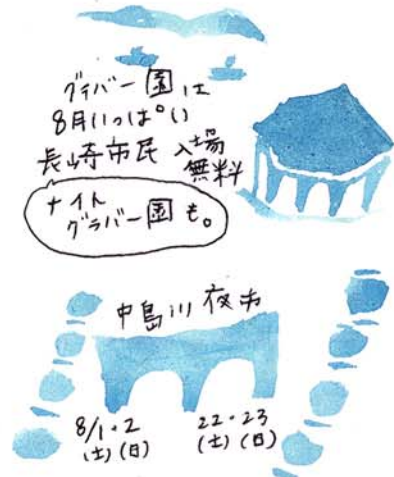 グラバー園は
8月いっぱい
長崎市民 入場
無料
ナイト
グラバー園も。
中島川夜市
8/1・2
(土)(日)
22・23
(土)(日)